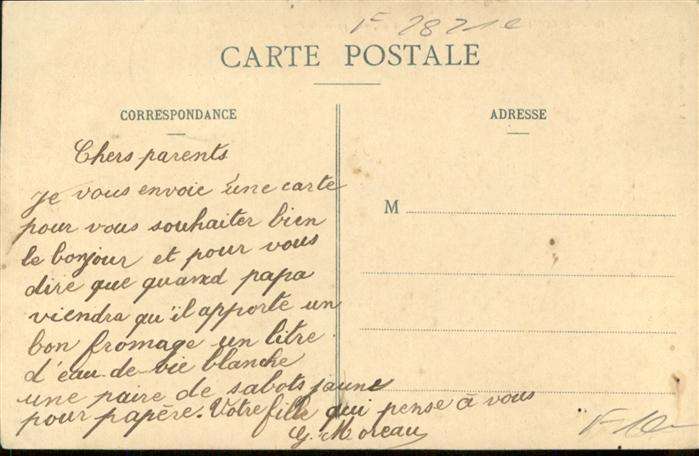 F 2821e
CARTE POSTALE
CORRESPONDANCE
Chers parents
Je vous envoie une carte
pour vous souhaiter bien
le bonjour et pour vous
dire que quand papa
viendra qu'il apporte un
bon fromage un litre
d'eau-de-vie blanche
une paire de sabots jaune
pour papère. Votre fille qui pense à vous
G. Moreau
ADRESSE
M